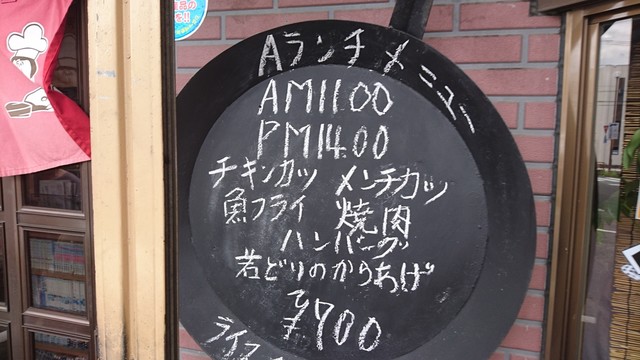 Aランチメニュー
AM11.00
PM14.00
チキンカツ メンチカツ
魚フライ 焼肉
ハンバーグ
若どりのからあげ
¥700
ライス